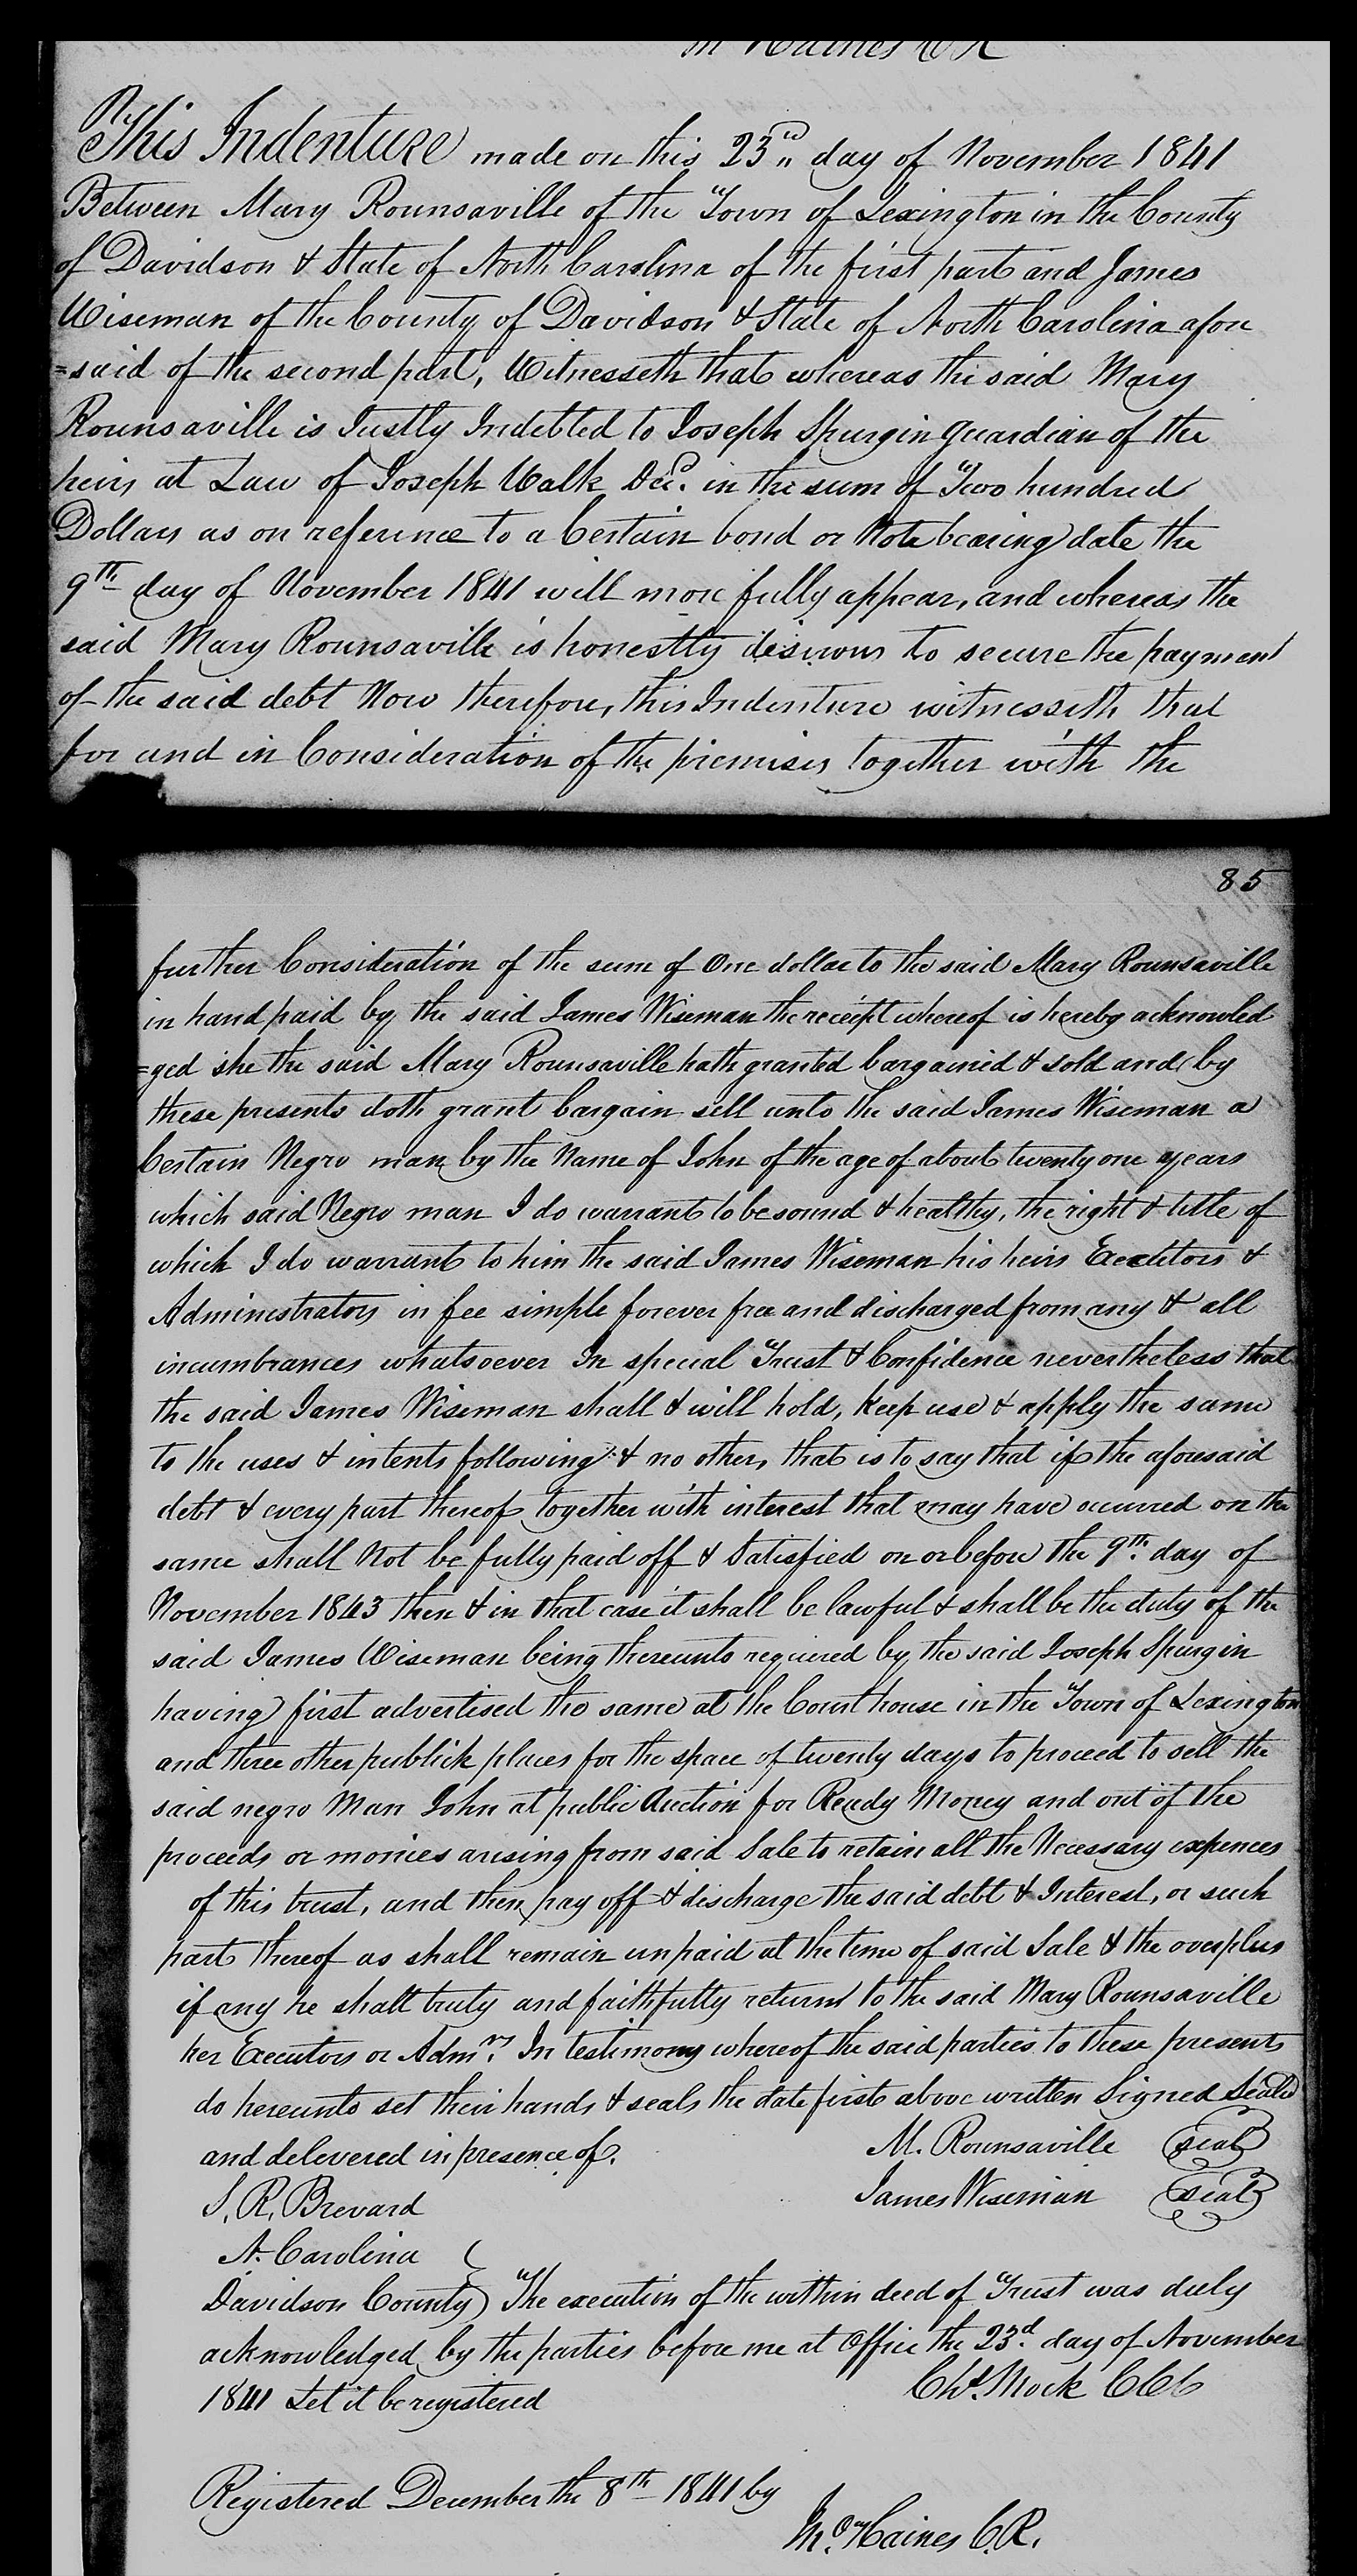 Haines C R
This Indenture made on this 23rd day of November 1841
Between Mary Rounsaville of the Town of Lexington in the County
of Davidson & State of North Carolina of the first part and James
Wiseman of the County of Davidson & State of North Carolina afore
=said of the second part, Witnesseth that whereas the said Mary
Rounsaville is Justly Indebted to Joseph Spurgin guardian of the
heirs at Law of Joseph Walk Decd. in the sum of Two hundred
Dollars as on reference to a Certain bond or Note bearing date the
9th day of November 1841 will more fully appear, and whereas the
said Mary Rounsaville is honestly desirous to secure the payment
of the said debt Now therefore, this Indenture witnesseth that
for and in Consideration of the premises together with the
85
further Consideration of the sum of One dollar to the said Mary Rounsaville
in hand paid by the said James Wiseman the receipt whereof is hereby acknowled
=ged she the said Mary Rounsaville hath granted bargained & sold and by
these presents doth grant bargain sell unto the said James Wiseman a
Certain Negro man by the Name of John of the age of about twenty one years
which said Negro man I do warrant to be sound & healthy, the right & title of
which I do warrant to him the said James Wiseman his heirs Executors &
Administrators in fee simple forever free and discharged from any & all
incumbrances whatsoever In special Trust & Confidence nevertheless that
the said James Wiseman shall & will hold, keep use & apply the same
to the uses & intents following & no other, that is to say that if the aforesaid
debt & every part thereof together with interest that may have occurred on the
same shall Not be fully paid off & Satisfied on or before the 9th day of
November 1843 then & in that case it shall be lawful & shall be the duty of the
said James Wiseman being thereunto required by the said Joseph Spurgin
having first advertised the same at the Court house in the Town of Lexington
and three other publick places for the space of twenty days to proceed to sell the
said negro Man John at public Auction for Ready Money and out of the
proceeds or monies arising from said Sale to retain all the Necessary expences
of this trust, and then pay off & discharge the said debt & Interest, or such
part thereof as shall remain unpaid at the time of said Sale & the overplus
if any he shall truly and faithfully return to the said Mary Rounsaville
her Executors or Admrs. In testimony whereof the said parties to these presents
do hereunto set their hands & seals the date first above written Signed Sealed
and delevered in presence of. M. Rounsaville (seal)
S. R. Brevard James Wiseman (seal)
N. Carolina
Davidson County } The execution of the within deed of Trust was duly
acknowledged by the parties before me at Office the 23d. day of November
1841 Let it be registered Chs. Mock CCC
Registered December the 8th 1841 by
Mo. Haines C. R.